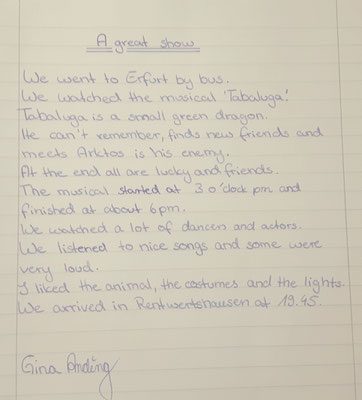 A great show
We went to Erfurt by bus.
We watched the musical 'Tabaluga'.
Tabaluga is a small green dragon.
He can't remember, finds new friends and
meets Arktos is his enemy.
At the end all are lucky and friends.
The musical started at 3 o'clock pm and
finished at about 6 pm.
We watched a lot of dancen and actors.
We listened to nice songs and some were
very loud.
I liked the animal, the costumes and the lights.
We arrived in Rentwertshausen at 19.45.
Gina Anding